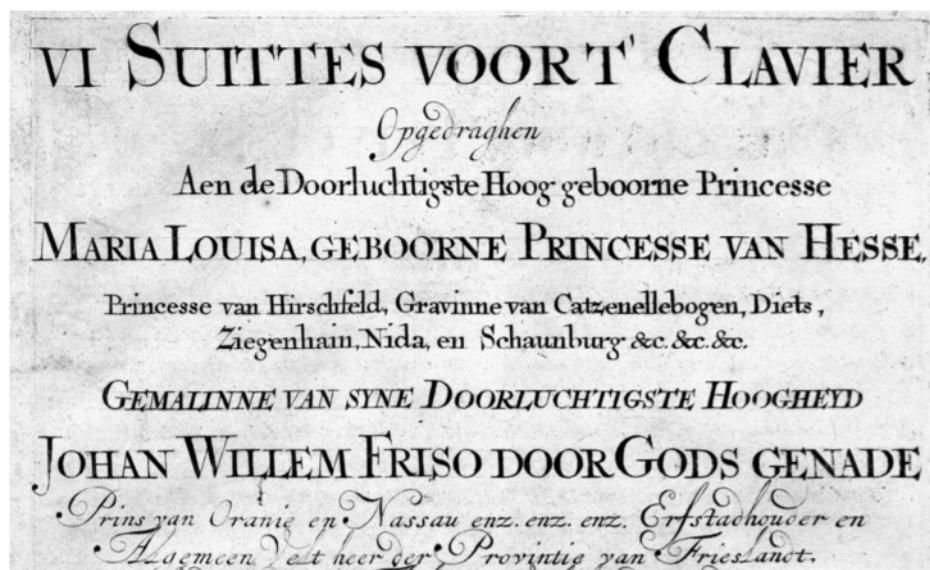 VI SUITTES VOOR T' CLAVIER
Opgedraghen
Aen de Doorluchtigste Hoog geboorne Princesse
MARIA LOUISA, GEBOORNE PRINCESSE VAN HESSE,
Princesse van Hirschfeld, Gravinne van Catzenellebogen, Diets,
Ziegenhain, Nida, en Schaunburg &c. &c. &c.
GEMALINNE VAN SYNE DOORLUCHTIGSTE HOOGHEYD
JOHAN WILLEM FRISO DOOR GODS GENADE
Prins van Oranie en Nassau enz. enz. enz. Erfstadhouder en
Algemeen Velt heer der Provintie van Frieslandt.